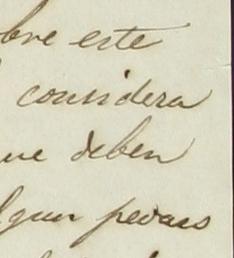 bre este
considera
ue deben
lgun pedaso